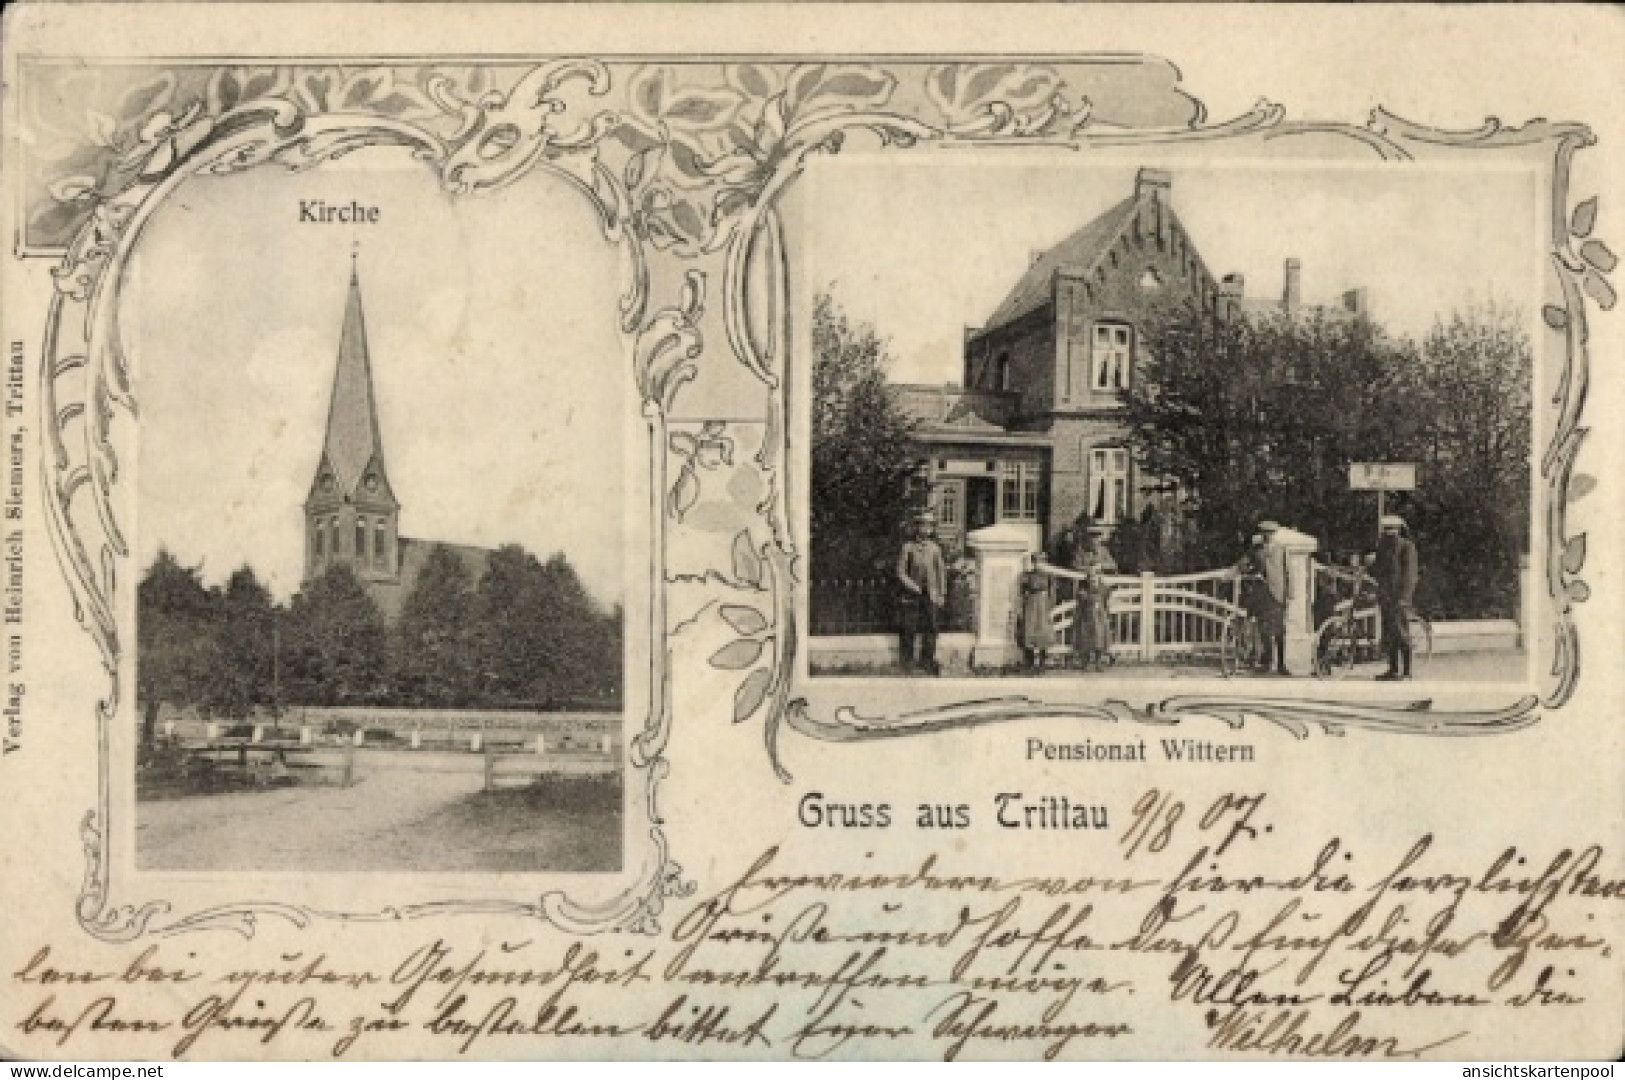 Kirche
Verlag von Heinrich Siemers, Trittau
Pensionat Wittern
Gruss aus Trittau 9/8 07.
Erwiedere von hier die herzlichsten
Grüße und hoffe daß Euch diese Zei-
len bei guter Gesundheit antreffen möge. Allen Lieben die
besten Grüße zu bestellen bittet Euer Schwager Wilhelm
delcampe.net
ansichtskartenpool